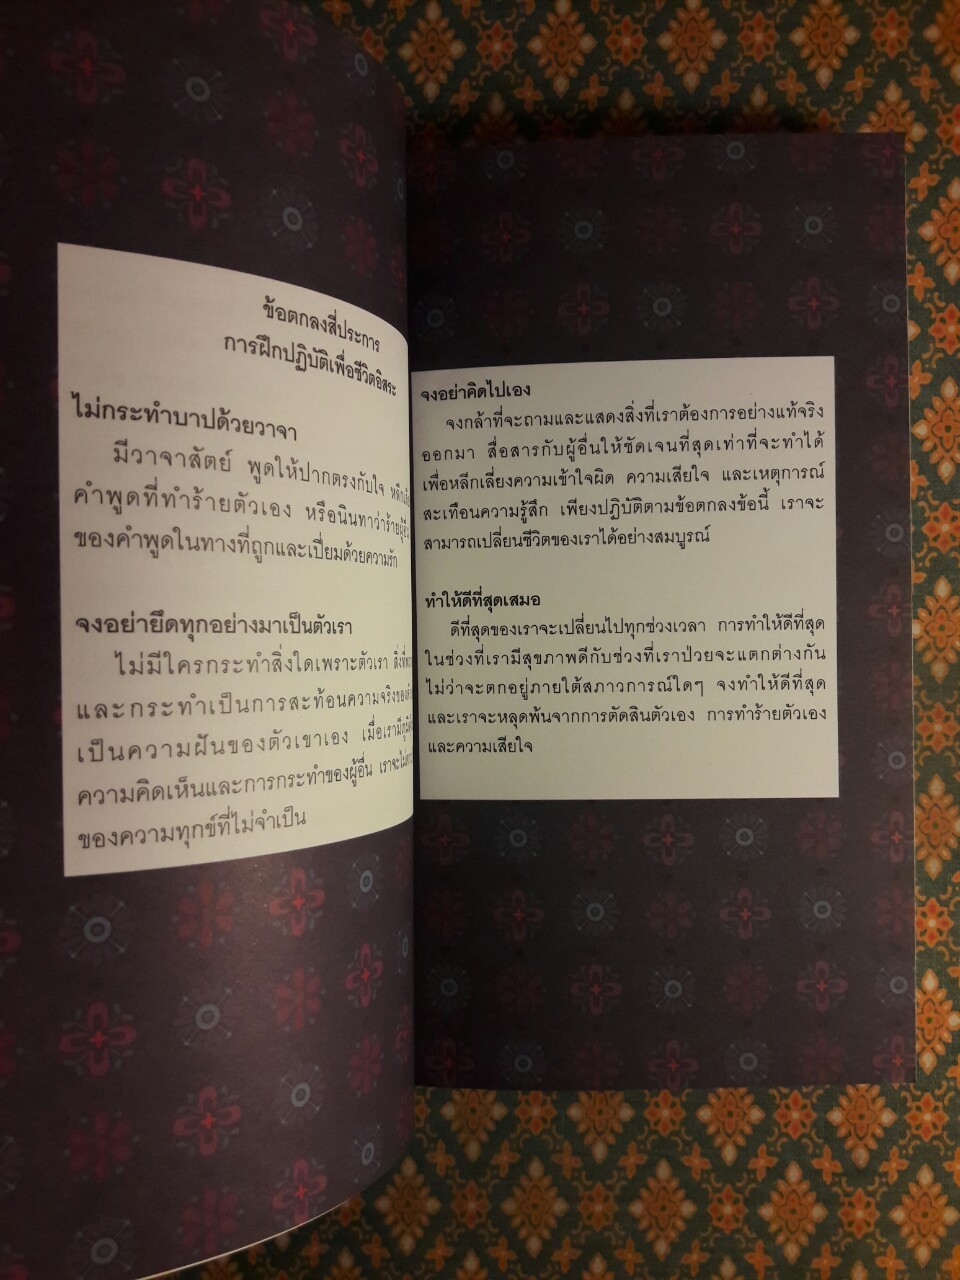 ข้อตกลงสี่ประการ
การฝึกปฏิบัติเพื่อชีวิตอิสระ
ไม่กระทำบาปด้วยวาจา
มีวาจาสัตย์ พูดให้ปากตรงกับใจ
คำพูดที่ทำร้ายตัวเอง หรือนินทาว่าร้ายผู้อื่น
ของคำพูดในทางที่ถูกและเปี่ยมด้วยความรัก
จงอย่ายึดทุกอย่างมาเป็นตัวเรา
ไม่มีใครกระทำสิ่งใดเพราะตัวเรา
และกระทำเป็นการสะท้อนความจริงของ
เป็นความฝันของตัวเขาเอง เมื่อเรามี
ความคิดเห็นและการกระทำของผู้อื่น
ของความทุกข์ที่ไม่จำเป็น
จงอย่าคิดไปเอง
จงกล้าที่จะถามและแสดงสิ่งที่เราต้องการอย่างแท้จริง
ออกมา สื่อสารกับผู้อื่นให้ชัดเจนที่สุดเท่าที่จะทำได้
เพื่อหลีกเลี่ยงความเข้าใจผิด ความเสียใจ และเหตุการณ์
สะเทือนความรู้สึก เพียงปฏิบัติตามข้อตกลงข้อนี้ เราจะ
สามารถเปลี่ยนชีวิตของเราได้อย่างสมบูรณ์
ทำให้ดีที่สุดเสมอ
ดีที่สุดของเราจะเปลี่ยนไปทุกช่วงเวลา การทำให้ดีที่สุด
ในช่วงที่เรามีสุขภาพดีกับช่วงที่เราป่วยจะแตกต่างกัน
ไม่ว่าจะตกอยู่ภายใต้สภาวการณ์ใดๆ จงทำให้ดีที่สุด
และเราจะหลุดพ้นจากการตัดสินตัวเอง การทำร้ายตัวเอง
และความเสียใจ